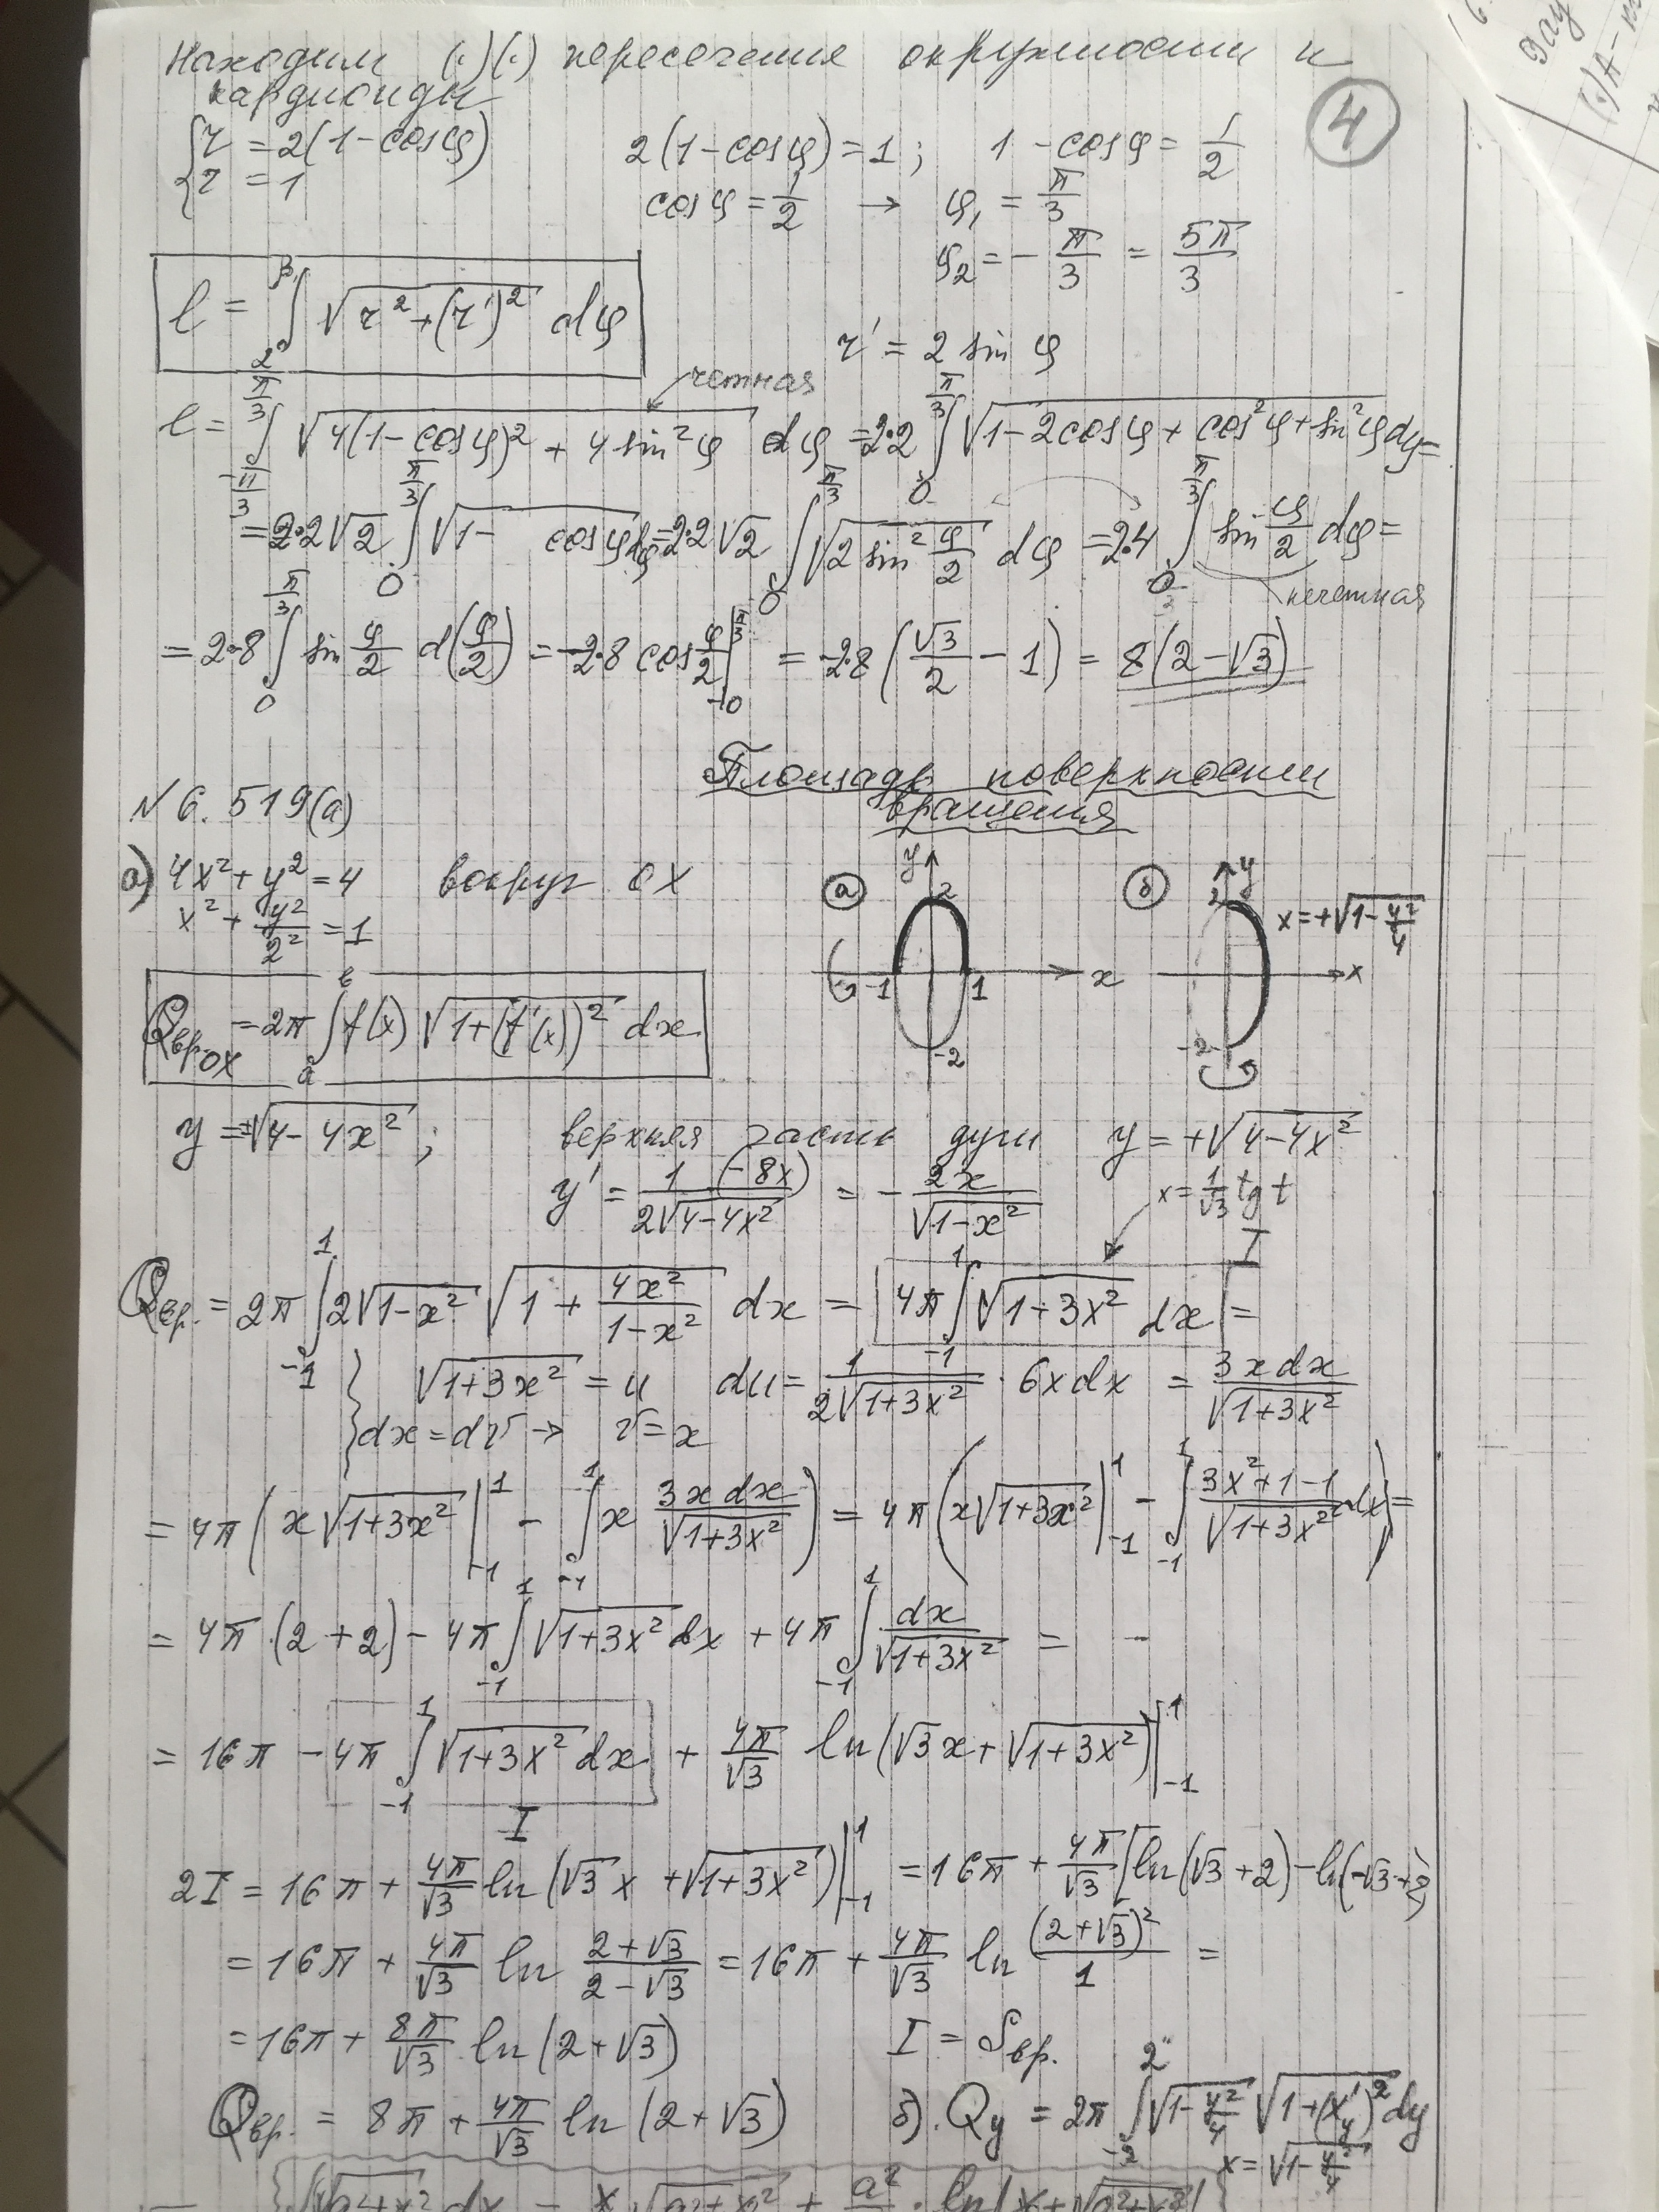 Находим (·)(·) пересечения окружности и
кардиоиды
④
{r = 2(1-cosφ)
{r = 1
2(1-cosφ)=1; 1-cosφ = 1/2
cosφ = 1/2 → φ₁ = π/3
φ₂ = -π/3 = 5π/3
l = ∫_α^β √(r²+(r')²) dφ
r' = 2 sin φ
четная
l = ∫_{-π/3}^{π/3} √(4(1-cosφ)² + 4 sin²φ) dφ = 2·2 ∫_0^{π/3} √(1-2cosφ + cos²φ + sin²φ) dφ =
= 2·2√2 ∫_0^{π/3} √(1- cosφ) dφ = 2·2√2 ∫_0^{π/3} √(2 sin² φ/2) dφ = 2·4 ∫_0^{π/3} sin φ/2 dφ =
нечетная
= 2·8 ∫_0^{π/3} sin φ/2 d(φ/2) = -2·8 cos φ/2 |_0^{π/3} = -2·8 (√3/2 - 1) = 8(2-√3)
Площадь поверхности
вращения
N 6.519(а)
а) 4x²+y²=4 вокруг OX
x² + y²/2² = 1
а y 2 -1 1 x -2
б y 2 x -2 x=+√(1-y²/4)
Q_{вр.OX} = 2π ∫_a^b f(x) √(1+(f'(x))²) dx
y = ±√(4-4x²); верхняя часть дуги y = +√(4-4x²)
y' = 1·(-8x)/(2√(4-4x²)) = - 2x/√(1-x²)
x = 1/√3 tg t
I
Q_{вр.} = 2π ∫_{-1}^1 2√(1-x²) √(1 + 4x²/(1-x²)) dx = 4π ∫_{-1}^1 √(1+3x²) dx =
√(1+3x²) = u du = 1/(2√(1+3x²)) · 6x dx = 3x dx/√(1+3x²)
dx = dv → v = x
= 4π (x√(1+3x²) |_{-1}^1 - ∫_{-1}^1 x 3x dx/√(1+3x²)) = 4π (x√(1+3x²) |_{-1}^1 - ∫_{-1}^1 (3x²+1-1)/√(1+3x²) dx) =
= 4π·(2+2) - 4π ∫_{-1}^1 √(1+3x²) dx + 4π ∫_{-1}^1 dx/√(1+3x²) =
= 16π - 4π ∫_{-1}^1 √(1+3x²) dx + 4π/√3 ln(√3x + √(1+3x²)) |_{-1}^1
I
2I = 16π + 4π/√3 ln(√3x + √(1+3x²)) |_{-1}^1 = 16π + 4π/√3 [ln(√3+2) - ln(-√3+2)
= 16π + 4π/√3 ln (2+√3)/(2-√3) = 16π + 4π/√3 ln (2+√3)²/1 =
= 16π + 8π/√3 ln(2+√3) I = S_{вр.}
Q_{вр.} = 8π + 4π/√3 ln(2+√3) б). Q_y = 2π ∫_{-2}^2 √(1-y²/4) √(1+(x'_y)²) dy
x = √(1-y²/4)